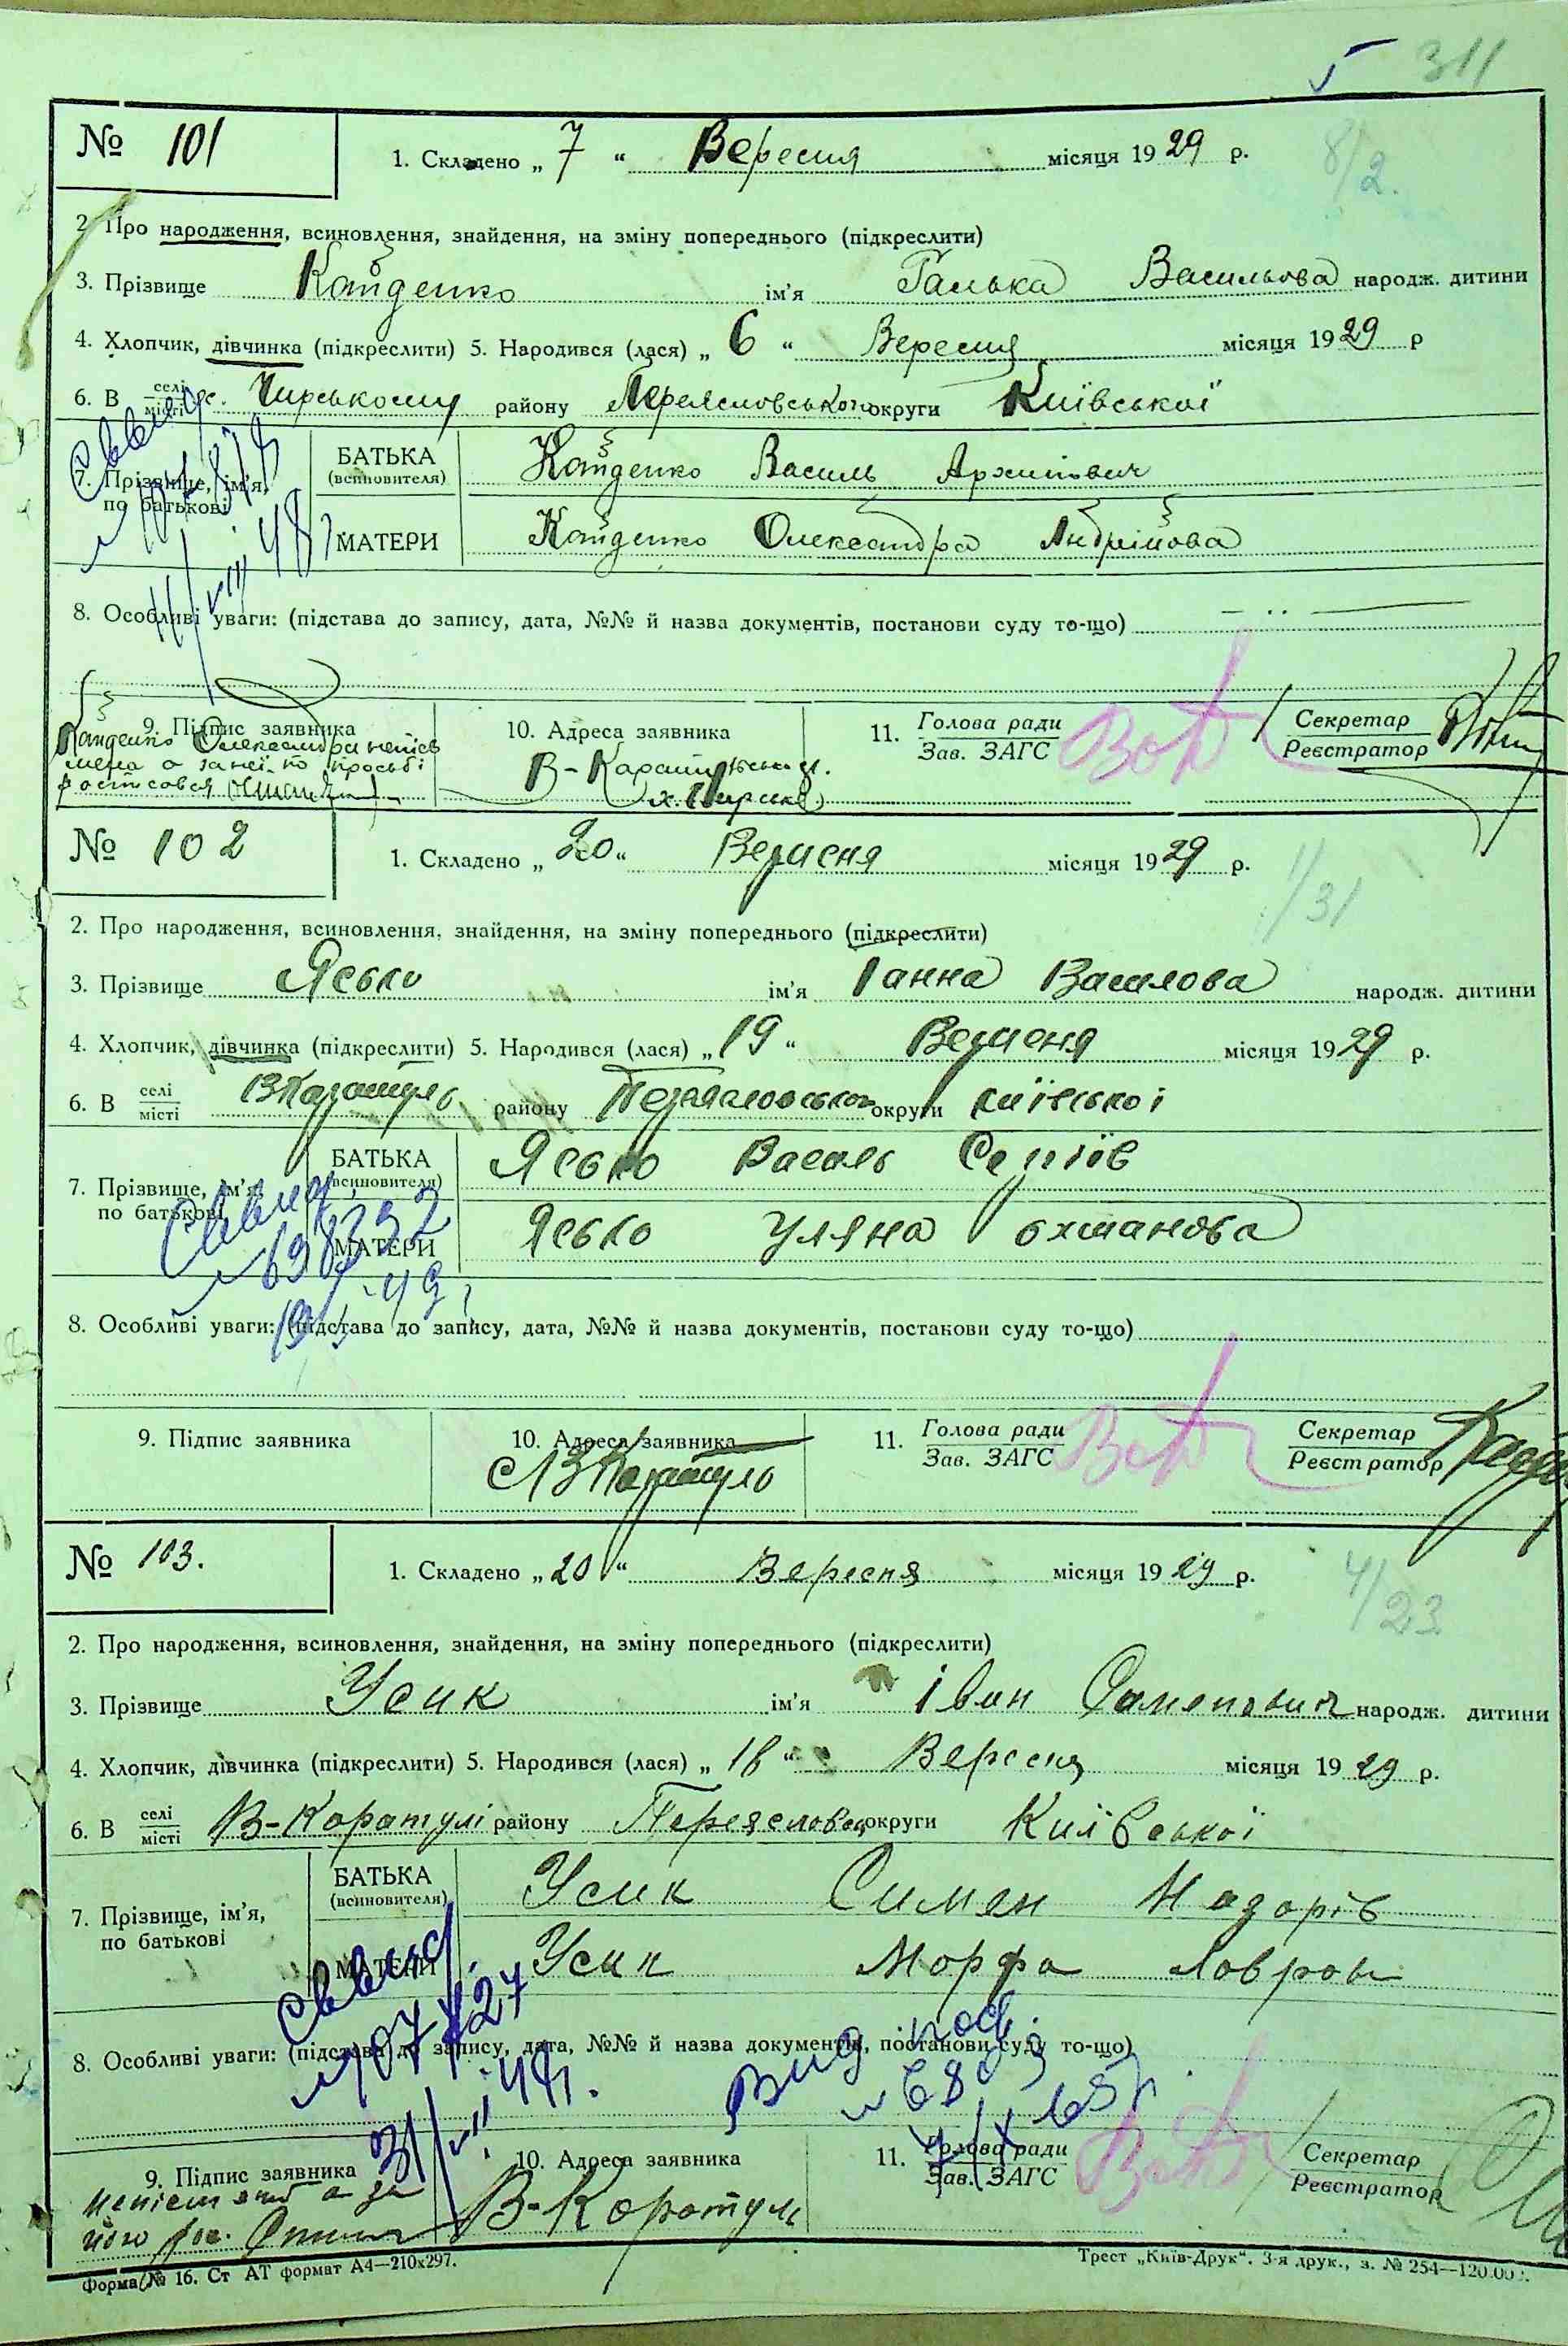 311
№ 101
1. Складено „ 7 “ Вересня місяця 1929 р.
8/2.
2. Про народження, всиновлення, знайдення, на зміну попереднього (підкреслити)
3. Прізвище Кайденко ім'я Галька Васильова народж. дитини
4. Хлопчик, дівчинка (підкреслити) 5. Народився (лася) „ 6 “ Вересня місяця 1929 р
6. В селі/місті х. Чирському району Переясловського округи Київської
7. Прізвище, ім'я, по батькові
БАТЬКА (всиновителя) Кайденко Василь Архипович
МАТЕРИ Кайденко Олександра Андрійова
8. Особливі уваги: (підстава до запису, дата, №№ й назва документів, постанови суду то-що)
9. Підпис заявника
Кайденко Олександра непісь
мена а за неї по просьбі
ростсовся
10. Адреса заявника
В-Каратульськ
х. Чирське
11. Голова ради
Зав. ЗАГС
Секретар
Реєстратор
№ 102
1. Складено „ 20 “ Вересня місяця 1929 р.
1/31
2. Про народження, всиновлення, знайдення, на зміну попереднього (підкреслити)
3. Прізвище Ясько ім'я Ганна Василова народж. дитини
4. Хлопчик, дівчинка (підкреслити) 5. Народився (лася) „ 19 “ Вересня місяця 1929 р.
6. В селі/місті ВКаратуль району Переясловською округи київської
7. Прізвище, ім'я, по батькові
БАТЬКА (всиновителя) Ясько Василь Сергіїв
МАТЕРИ Ясько Уляна охтанова
8. Особливі уваги: (підстава до запису, дата, №№ й назва документів, постанови суду то-що)
9. Підпис заявника
10. Адреса заявника
с ВКаратуль
11. Голова ради
Зав. ЗАГС
Секретар
Реєстратор
№ 103.
1. Складено „ 20 “ Вересня місяця 1929 р.
4/23
2. Про народження, всиновлення, знайдення, на зміну попереднього (підкреслити)
3. Прізвище Усик ім'я Іван Саменович народж. дитини
4. Хлопчик, дівчинка (підкреслити) 5. Народився (лася) „ 18 “ Вересня місяця 1929 р.
6. В селі/місті В-Каратулі району Переясловськ округи Київської
7. Прізвище, ім'я, по батькові
БАТЬКА (всиновителя) Усик Симен Назарів
МАТЕРИ Усик Морфа Лаврови
8. Особливі уваги: (підстава до запису, дата, №№ й назва документів, постанови суду то-що)
9. Підпис заявника
а за
його рос.
10. Адреса заявника
В-Коратуль
11. Голова ради
Зав. ЗАГС
Секретар
Реєстратор
Форма № 16. Ст АТ формат А4—210х297.
Трест „Київ-Друк“. 3-я друк., з. № 254—120.00